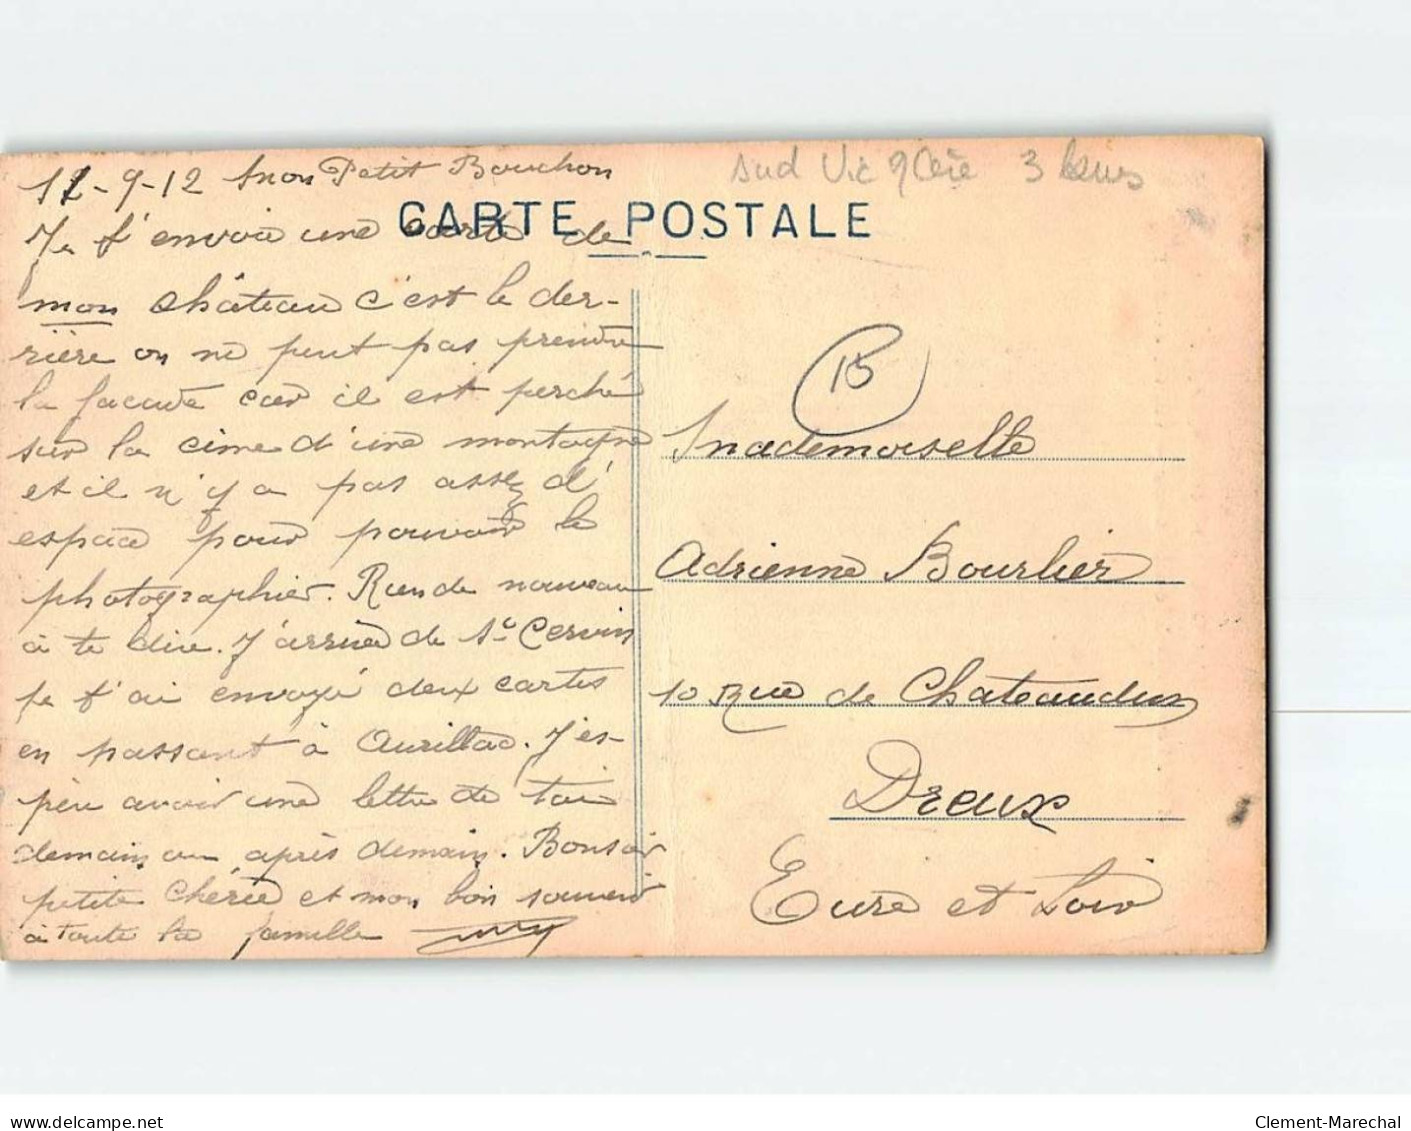 11-9-12 Mon Petit Bouchon
Je t'envoie une carte de
mon château c'est le der-
rière on ne peut pas prendre
la facade car il est perché
sur la cime d'une montagne
et il n'y a pas assez d'
espace pour pouvoir le
photographier. Rien de nouveau
à te dire. J'arrive de St Cernin
je t'ai envoyé deux cartes
en passant à Aurillac. J'es-
père avoir une lettre de toi
demain ou après demain. Bonsoir
petite chérie et mon bon souvenir
à toute la famille
sud Vic 3
CARTE POSTALE
15
Mademoiselle
Adrienne Bourlier
10 Rue de Chateaudun
Dreux
Eure et Loir
Clement-Marechal
delcampe.net